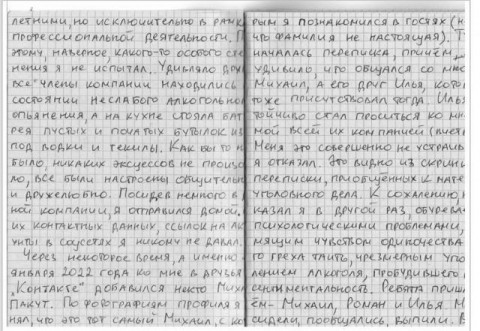 летними, но исключительно в рамк
профессиональной деятельности. П
этому, наверное, какого-то особого сте
нения я не испытал. Удивляло дру
все члены компании находились
состоянии неслабого алкогольно
опьянения, а на кухне стояла бат
рея пустых и початых бутылок из
под водки и текилы. Как бы то н
было, никаких эксцессов не произо
ло, все были настроены общительн
и дружелюбно. Посидев немного в
ной компании, я отправился домой.
их контактных данных, ссылок на ак
унты в соцсетях я никому не давал.
Через некоторое время, а именно
января 2022 года ко мне в друзья
"Контакте" добавился некто Миха
Пакут. По фотографиям профиля я
нял, что это тот самый Михаил, с ко
рым я познакомился в гостях (н
что фамилия не настоящая). Т
началась переписка, причём
удивило, что общался со мно
Михаил, а его друг Илья, кото
тоже присутствовал тогда. Илья
тойчиво стал проситься ко мн
мной всей их компанией (вмест
Меня это совершенно не устраив
я отказал. Это видно из скрин
переписки, приобщённых к мате
уголовного дела. К сожалению,
казал я в другой раз, обурева
психологическими проблемами,
мящим чувством одиночества
го греха таить, чрезмерным упо
лением алкоголя, пробудившего
сентиментальность. Ребята приш
ём - Михаил, Роман и Илья. М
сидели, пообщались, выпили. В